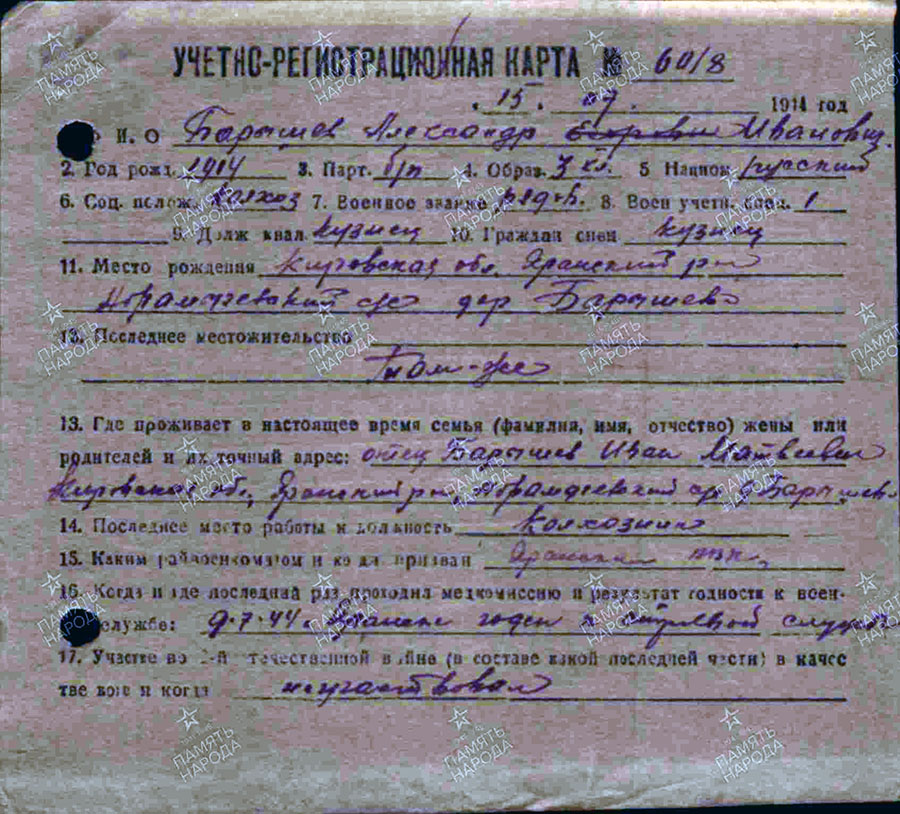 УЧЕТНО-РЕГИСТРАЦИОННАЯ КАРТА № 60/8
"15" 07. 1944 год
Ф И. О Барышев Александр Егорович Иванович.
2. Год рожд. 1914 3. Парт. б/п 4. Образ. 3 кл. 5 Национ. русский
6. Соц. полож. колхоз 7. Военное звание ряд-й. 8. Воен учетн. спец. 1
9. Долж квал. кузнец 10. Граждан спец кузнец
11. Место рождения Кировская обл. Яранский р-он
с/с дер Барышево
12. Последнее местожительство
Там-же
13. Где проживает в настоящее время семья (фамилия, имя, отчество) жены или
родителей и их точный адрес: отец Барышев Иван Матвеевич
Кировская обл, Яранский р-н, с/с д Барышево
14. Последнее место работы и должность колхозник
15. Каким райвоенкоматом и когда призван Яранским
16. Когда и где последний раз проходил медкомиссию и результат годности к воен-
службе: 9.7.44г. годен к службе
17. Участие во 2-й отечественной войне (в составе какой последней части) в качес
тве кого и когда не участвовал
ПАМЯТЬ НАРОДА